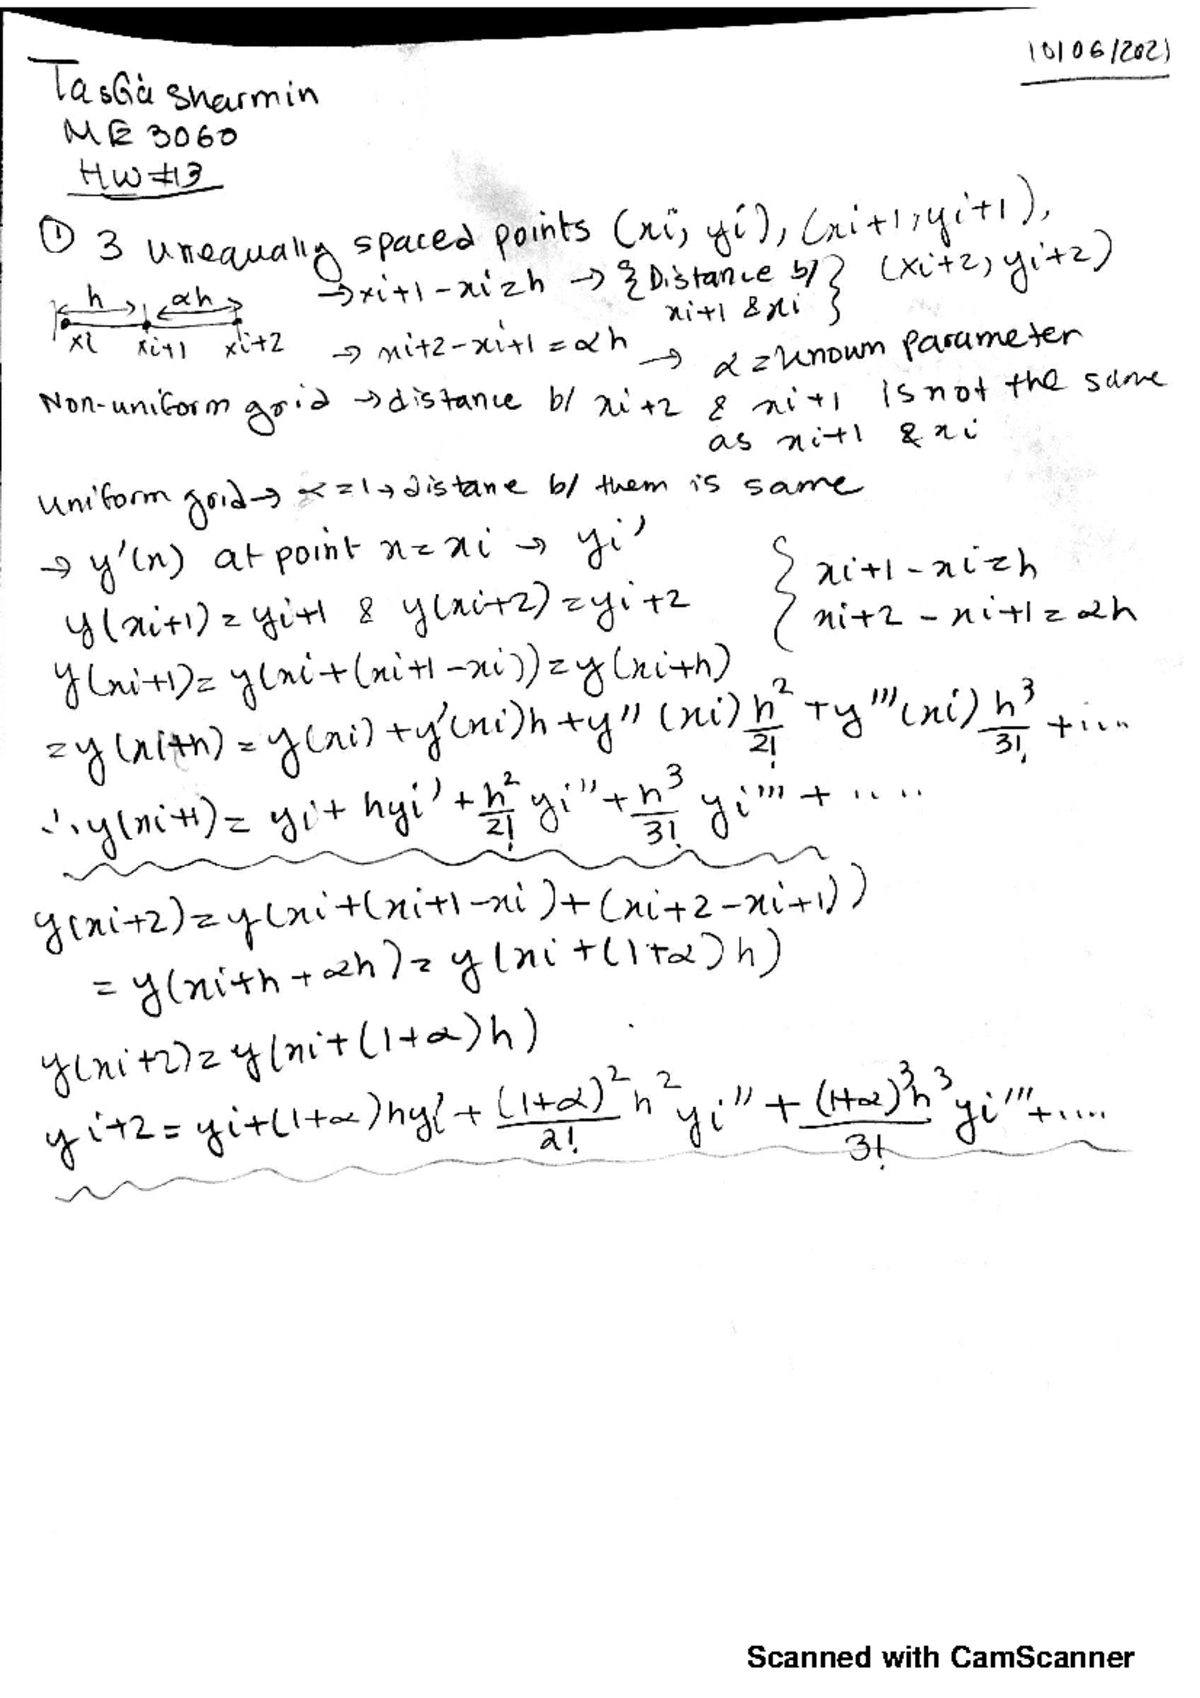 10/06/2021
Tasfia Sharmin
ME 3060
HW #13
① 3 unequally spaced points (xi, yi), (xi+1, yi+1),
(xi+2, yi+2)
h αh → xi+1 - xi = h → {Distance b/ xi+1 & xi}
xi xi+1 xi+2 → xi+2 - xi+1 = αh → α = known parameter
Non-uniform grid → distance b/ xi+2 & xi+1 is not the same
as xi+1 & xi
uniform grid → α = 1 → distane b/ them is same
→ y'(x) at point x = xi → yi'
{ xi+1 - xi = h
y(xi+1) = yi+1 & y(xi+2) = yi+2
xi+2 - xi+1 = αh
y(xi+1) = y(xi + (xi+1 - xi)) = y(xi+h)
= y(xi+h) = y(xi) + y'(xi)h + y''(xi) h²/2! + y'''(xi) h³/3! + ....
∴ y(xi+1) = yi + hyi' + h²/2! yi'' + h³/3! yi''' + .....
y(xi+2) = y(xi + (xi+1 - xi) + (xi+2 - xi+1))
= y(xi + h + αh) = y(xi + (1+α)h)
y(xi+2) = y(xi + (1+α)h)
yi+2 = yi + (1+α)hyi' + (1+α)²h²/2! yi'' + (1+α)³h³/3! yi''' + ....
Scanned with CamScanner